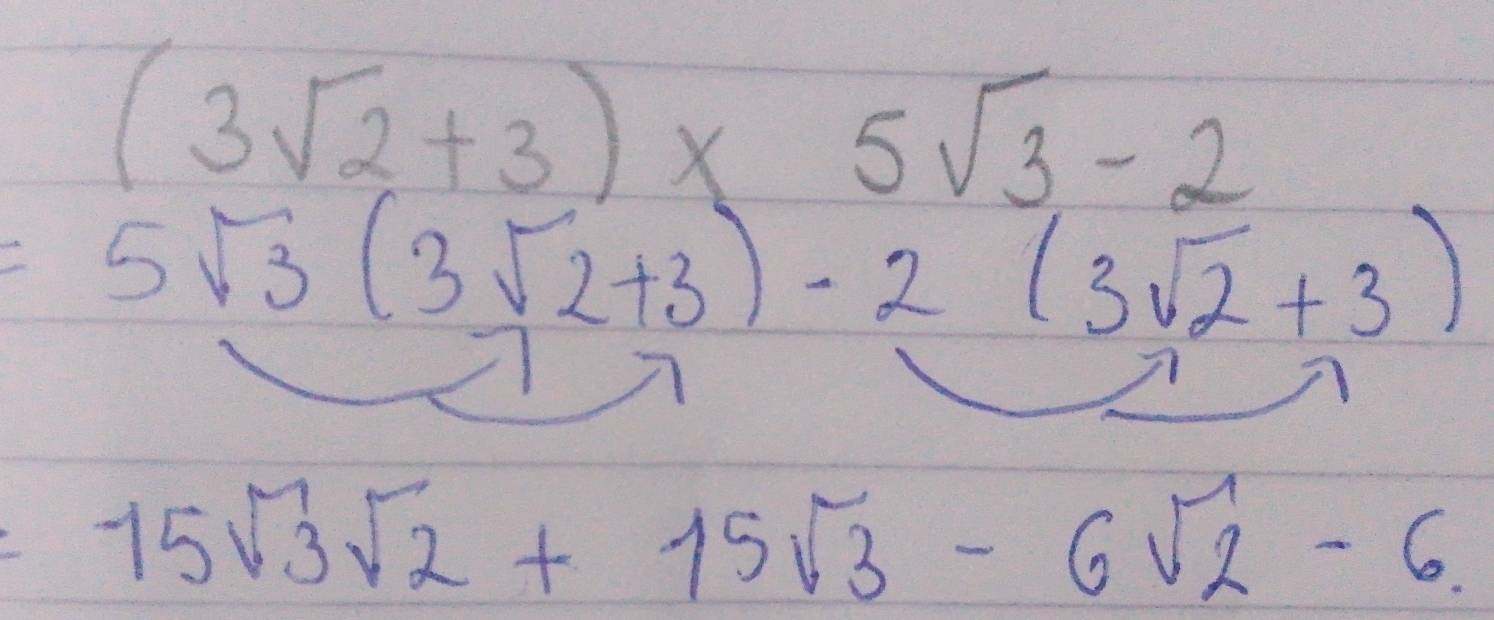 (3√2+3) x 5√3 - 2
= 5√3 (3√2+3) - 2 (3√2 + 3)
= 15√3√2 + 15√3 - 6√2 - 6.